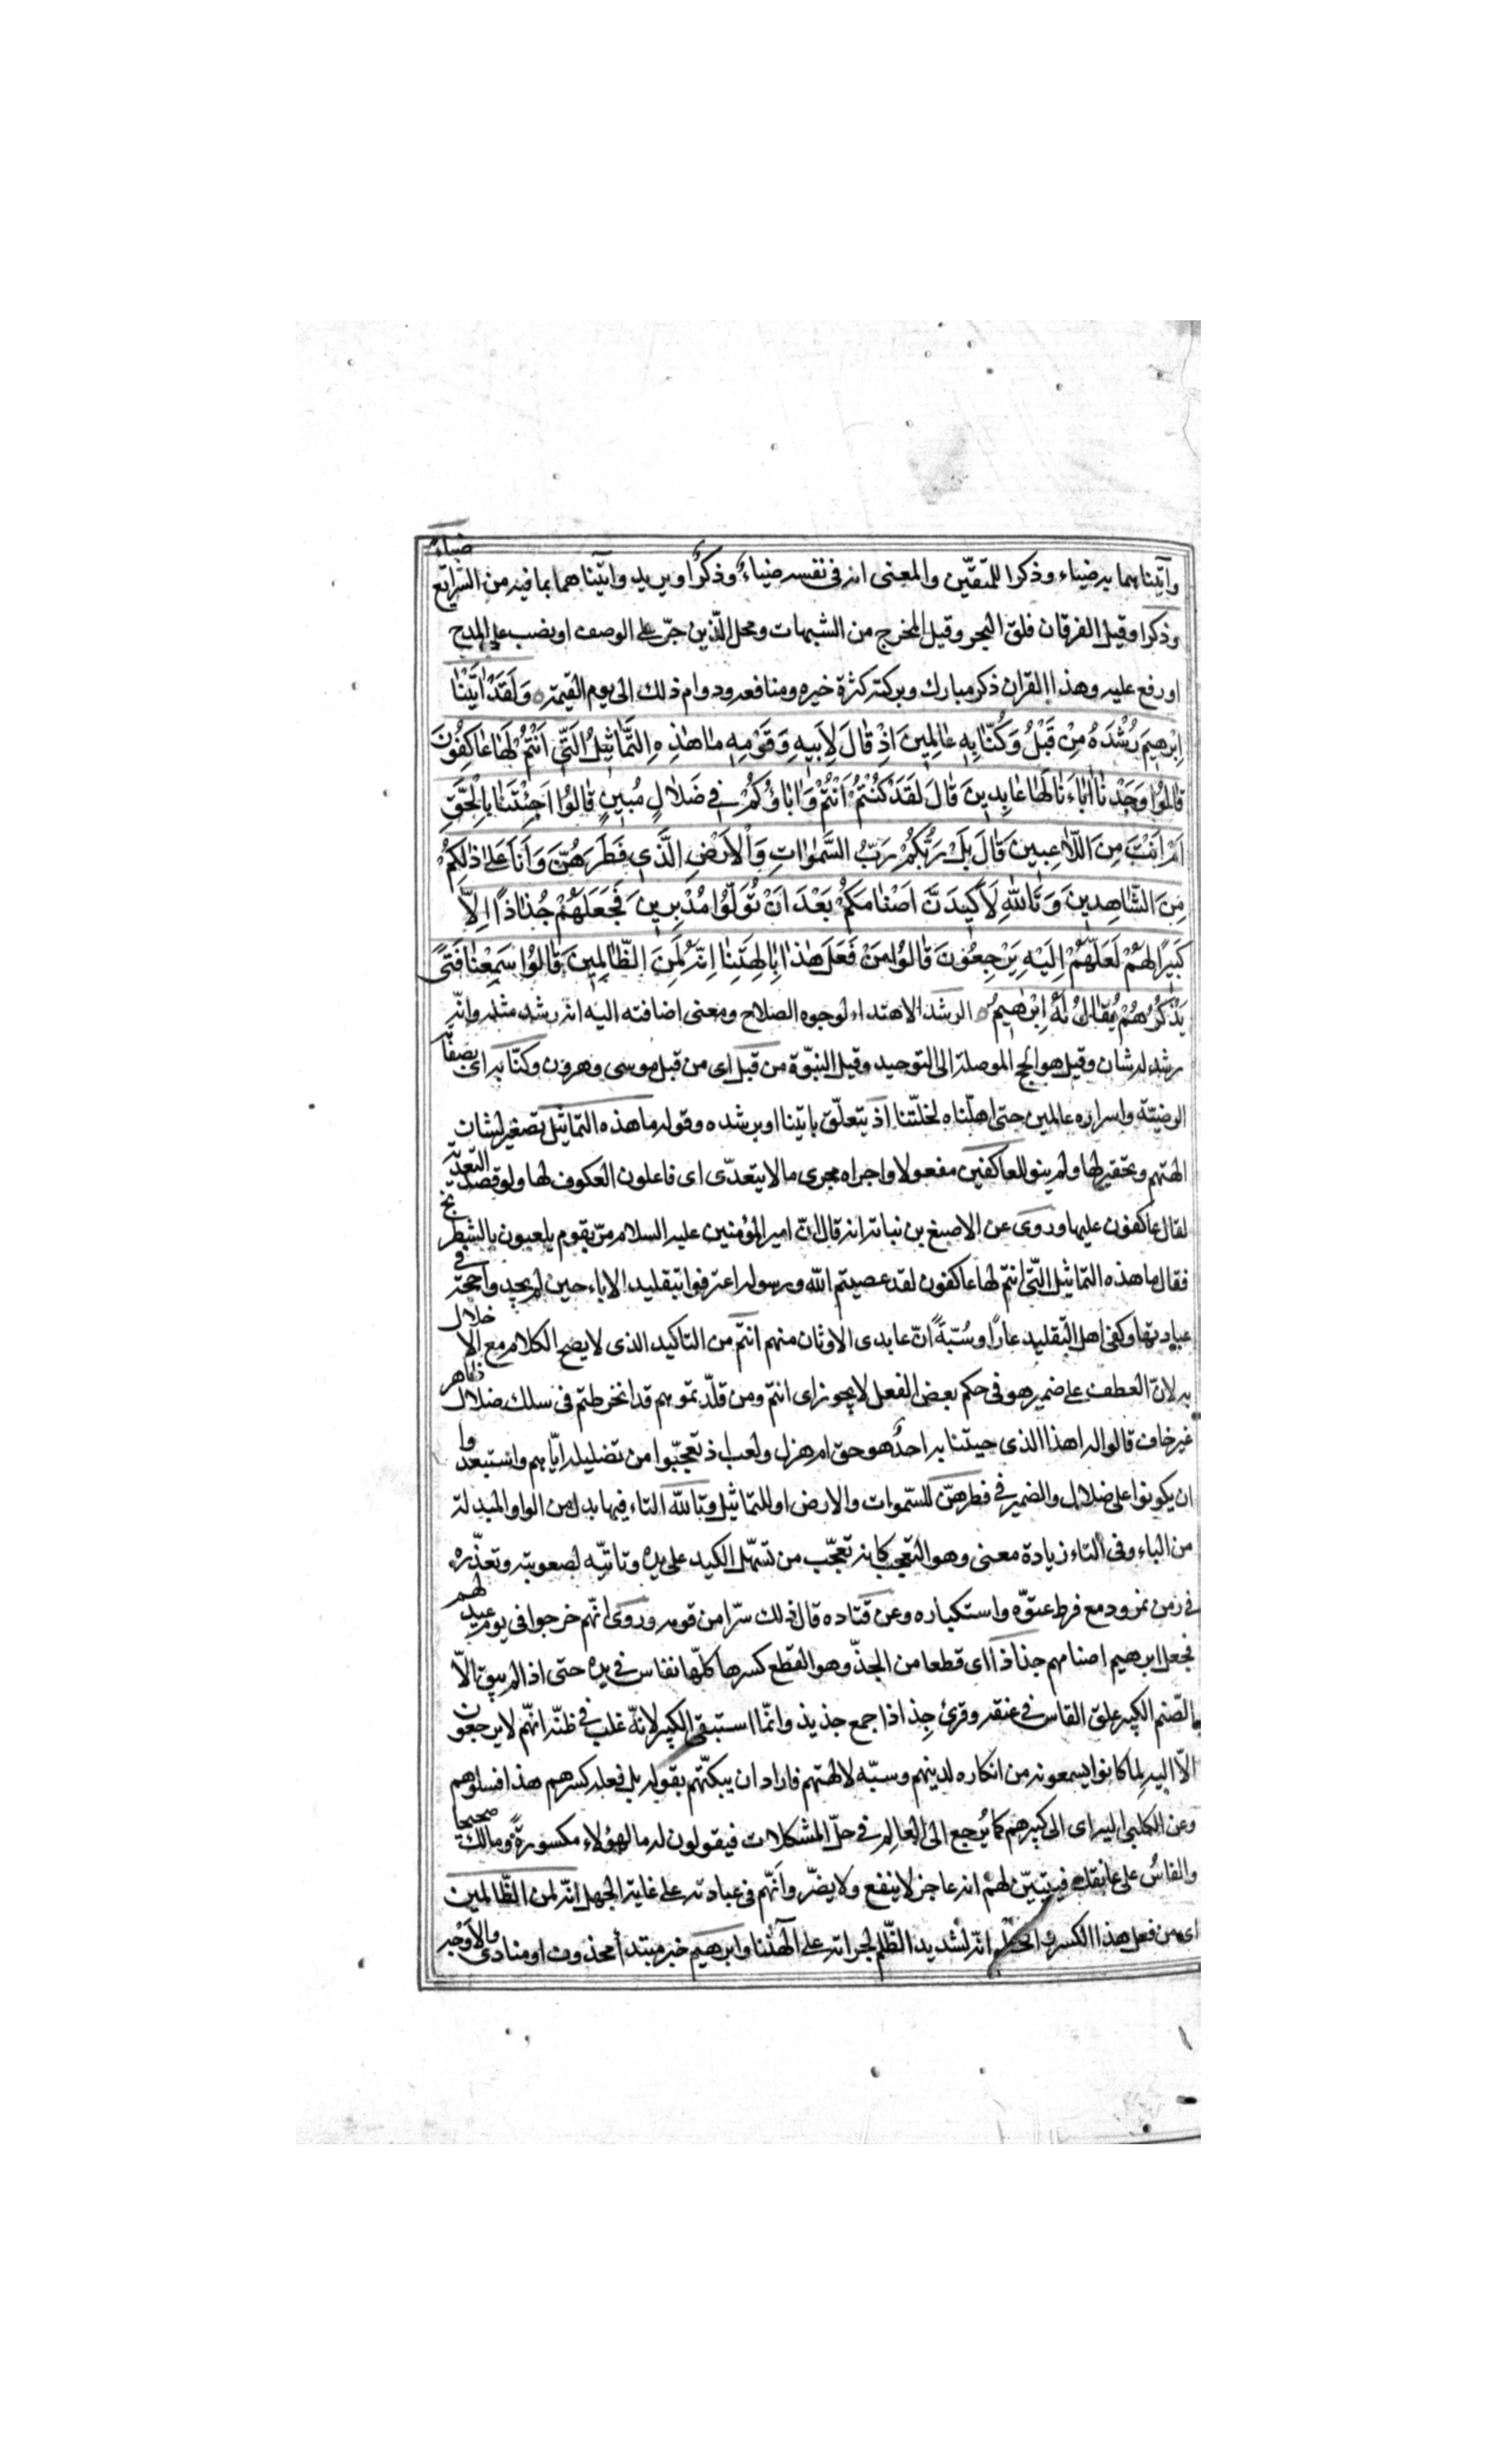 وآتيناهما به ضياء وذكرا للمتقين والمعنى انه في نفسه ضياءٌ وذكرٌ او يريد وآتيناهما بما فيه من الشرايع ضياء
وذكرا وقيل الفرقان فلق البحر وقيل المخرج من الشبهات ومحل الّذين جرّ على الوصف او نصب على المدح
او رفع عليه وهذا القران ذكر مبارك وبركته كثرة خيره ومنافعه ودوام ذلك الى يوم القيمة ه وَلَقَدْ اٰتَيْنٰا
اِبْرٰهِيمَ رُشْدَهُ مِنْ قَبْلُ وَكُنّٰا بِهِ عٰالِمِينَ اِذْ قٰالَ لِاَبِيهِ وَقَوْمِهِ مٰا هٰذِهِ التَّمٰاثِيلُ الَّتِي اَنْتُمْ لَهٰا عٰاكِفُونَ
قٰالُوا وَجَدْنٰا اٰبٰاءَنٰا لَهٰا عٰابِدِينَ قٰالَ لَقَدْ كُنْتُمْ اَنْتُمْ وَاٰبٰاؤُكُمْ فِي ضَلٰالٍ مُبِينٍ قٰالُوا اَجِئْتَنٰا بِالْحَقِّ
اَمْ اَنْتَ مِنَ اللّٰاعِبِينَ قٰالَ بَلْ رَبُّكُمْ رَبُّ السَّمٰوٰاتِ وَالْاَرْضِ الَّذِي فَطَرَهُنَّ وَاَنَا عَلىٰ ذٰلِكُمْ
مِنَ الشّٰاهِدِينَ وَتَاللّٰهِ لَاَكِيدَنَّ اَصْنٰامَكُمْ بَعْدَ اَنْ تُوَلُّوا مُدْبِرِينَ فَجَعَلَهُمْ جُذٰاذًا اِلّٰا
كَبِيرًا لَهُمْ لَعَلَّهُمْ اِلَيْهِ يَرْجِعُونَ قٰالُوا مَنْ فَعَلَ هٰذٰا بِاٰلِهَتِنٰا اِنَّهُ لَمِنَ الظّٰالِمِينَ قٰالُوا سَمِعْنٰا فَتًى
يَذْكُرُهُمْ يُقٰالُ لَهُ اِبْرٰهِيمُ ه الرشد الاهتداء لوجوه الصلاح ومعنى اضافته اليه انه رشد مثله وانّه
رشد له شان وقيل هو الحجج الموصلة الى التوحيد وقيل النبّوة من قبل اى من قبل موسى وهرون وكنّا به اى بصفاته
الوضيّة واسراره عالمين حتى اهلّناه لخلّتنا اذ يتعلّق باتينا او برشده وقوله ما هذه التماثيل تصغير لشان
الهتهم وتحقير لها ولم ينو للعاكفين مفعولا واجراه مجرى ما لا يتعدّى اى فاعلون العكوف لها ولو قصد التعدية
لقال عاكفون عليها وروى عن الاصبغ بن نباته انه قال انّ امير المؤمنين عليه السلام مرّ بقوم يلعبون بالشطرنج
فقال ما هذه التماثيل الّتى انتم لها عاكفون لقد عصيتم الله ورسوله اعترفوا بتقليد الاباء حين لم يجدوا حجة في
عبادتها وكفى اهل التقليد عارًا وسُبّةً انّ عابدى الاوثان منهم انتم من التاكيد الذى لا يصح الكلام مع الاخلال
به لانّ العطف على ضمير هو فى حكم بعض الفعل لا يجوز اى انتم ومن قلّدتموهم قد انخرطتم فى سلك ضلال ظاهر
غير خاف قالوا له اهذا الذى جيتنا به احدٌ هو حق ام هزل ولعب اذ تعجّبوا من تضليله ايّاهم واستبعدوا
ان يكونوا على ضلال والضمير فى فطرهنّ للسّموات والارض او للتماثيل وتالله التاء فيها بدل من الواو المبدلة
من الباء وفى التاء زيادة معنى وهو التعجب كانه تعجّب من تسهّل الكيد على يده وتاتيّه لصعوبته وتعذّره
فى زمن نمرود مع فرط عتوّه واستكباره وعن قتاده قال ذلك سرّا من قومه وروى انّهم خرجوا فى يوم عيد لهم
فجعل ابرهيم اصنامهم جذاذا اى قطعا من الجذّ وهو القطع كسرها كلّها بفاس فى يده حتى اذا لم يبق الّا
الصّنم الكبير علق الفاس فى عنقه وقرئ جِذاذا جمع جذيذ وانّما استبقى الكبير لانّه غلب فى ظنّه انّهم لا يرجعون
الّا اليه لما كانوا يسمعونه من انكاره لدينهم وسبّه لالهتهم فاراد ان يبكتّهم بقوله بل فعله كبيرهم هذا فسلوهم
وعن الكلبى اليه اى الى كبيرهم كما يُرجع الى العالم فى حلّ المشكلات فيقولون له ما لهؤلاء مكسورةً وما لك صحيحا
والفاسُ على عاتقك فيتبيّن لهم انه عاجز لا ينفع ولا يضرّ وانّهم فى عبادته على غاية الجهل انّه لمن الظّالمين
اى من فعل هذا الكسر والحطم انّه لشديد الظّلم لجراته على الهتنا وابرهيم خبر مبتدأ محذوف او منادى والاوجه